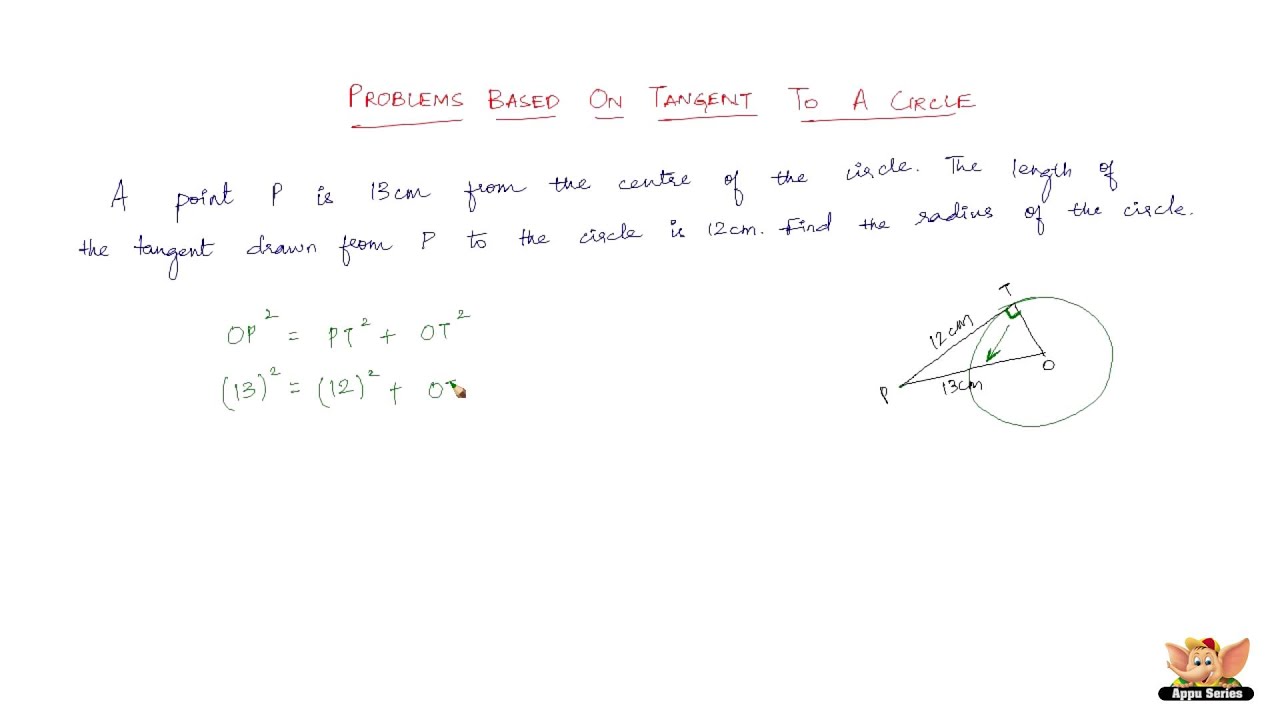 PROBLEMS BASED ON TANGENT TO A CIRCLE
A point P is 13cm from the centre of the circle. The length of
the tangent drawn from P to the circle is 12cm. Find the radius of the circle.
OP² = PT² + OT²
(13)² = (12)² + OT
T
12cm
O
P
13cm
Appu Series